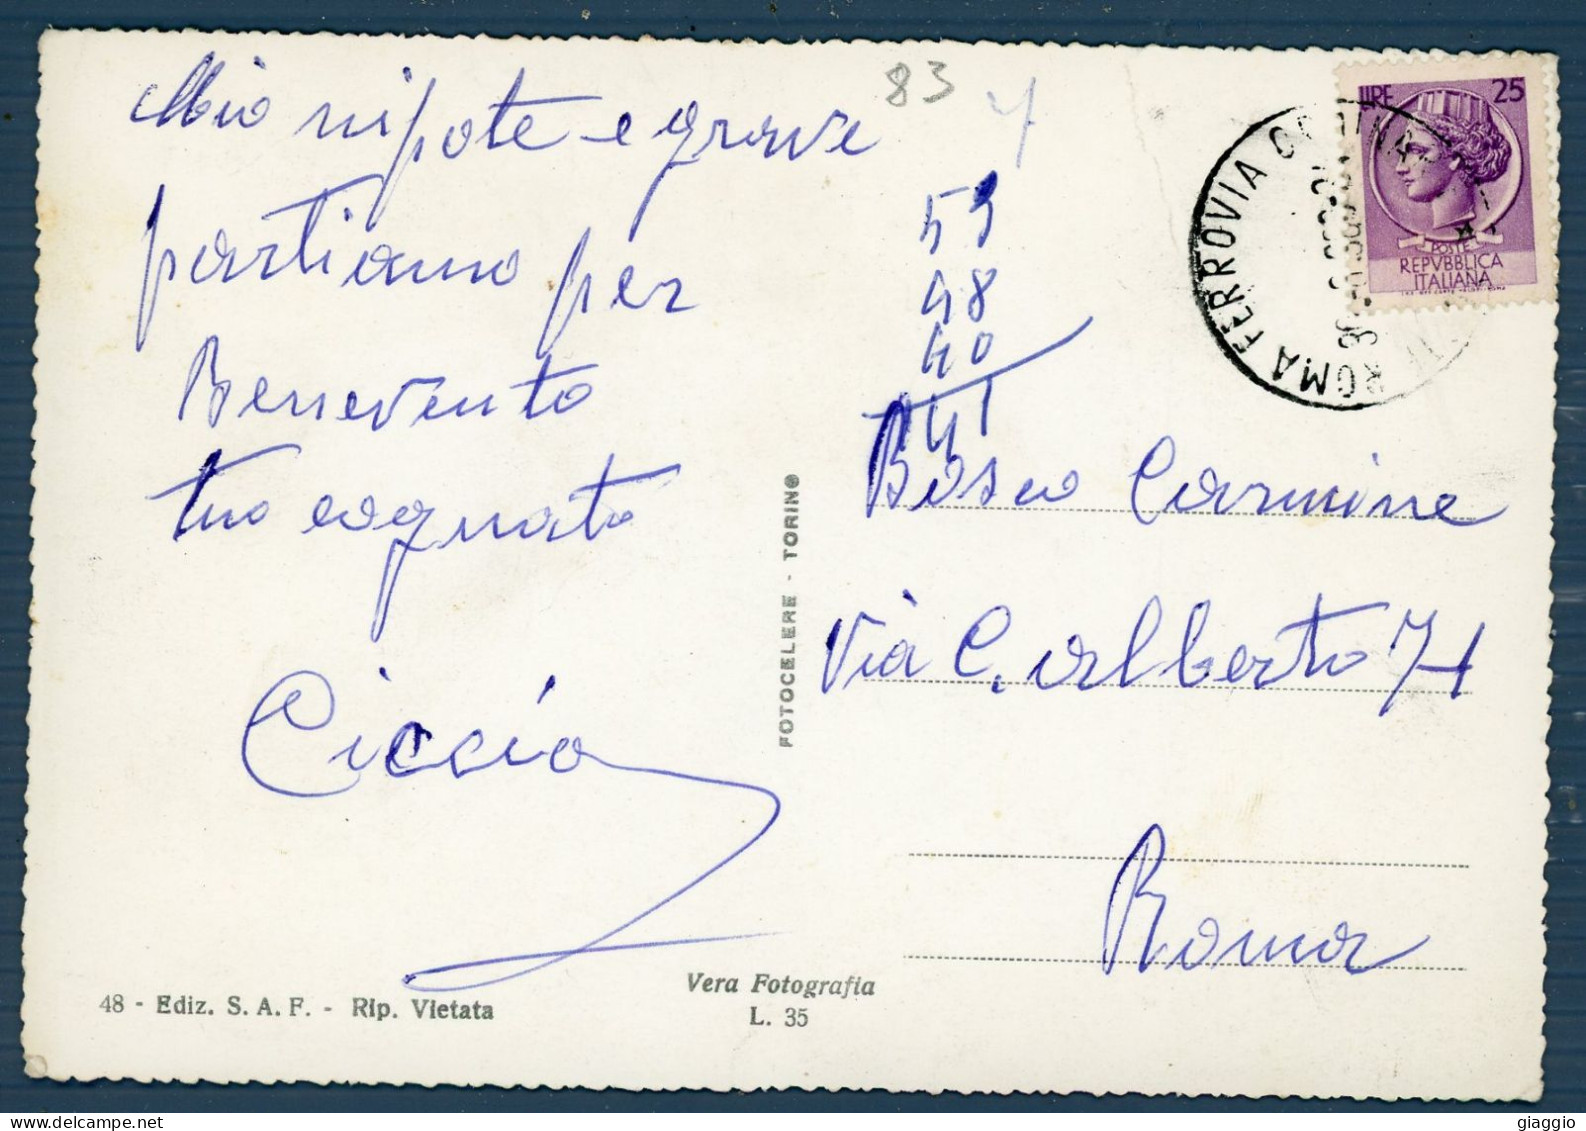 Mio nipote e grave
partiamo per
Benevento
tuo cognato
Ciccio
83
59
48
40
41
Bosco Carmine
Via C. Alberto 71
Roma
LIRE 25
POSTE
REPVBBLICA
ITALIANA
ROMA FERROVIA
FOTOCELERE - TORINO
48 - Ediz. S. A. F. - Rip. Vietata
Vera Fotografia
L. 35
giaggio